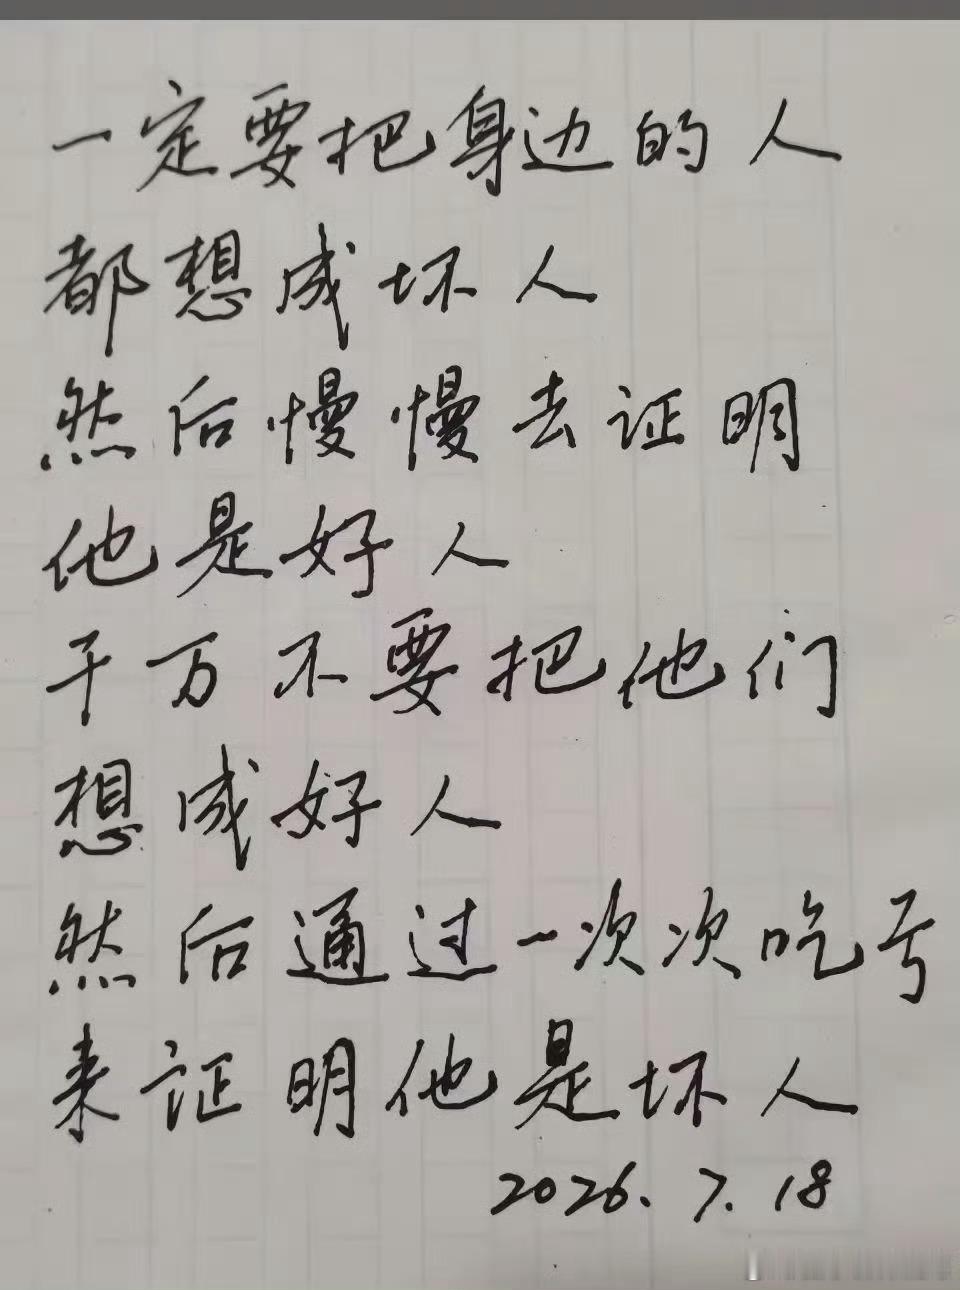 一定要把身边的人
都想成坏人
然后慢慢去证明
他是好人
千万不要把他们
想成好人
然后通过一次次吃亏
来证明他是坏人
2026.7.18